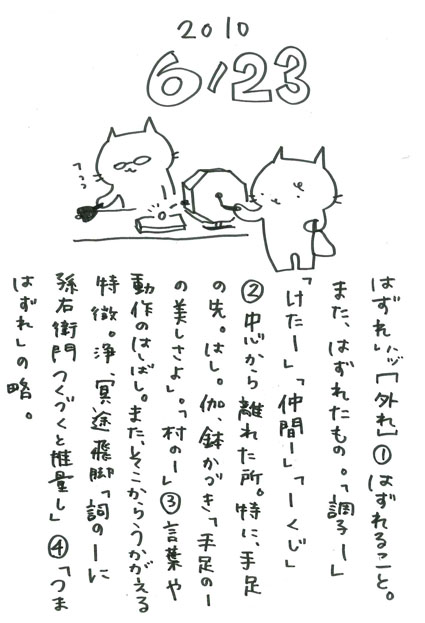 2010
6/23
はずれ』ハヅ―[外れ]①はずれること。
また、はずれたもの。「調子―」
「けた―」「仲間―」「―くじ」
②中心から離れた所。特に、手足
の先。はし。伽、鉢かづき「手足の―
の美しさよ」。「村の―」③言葉や
動作のはしばし。また、そこからうかがえる
特徴。浄、冥途飛脚「詞の―に
孫右衛門つくづくと推量し」④「つま
はずれ」の略。